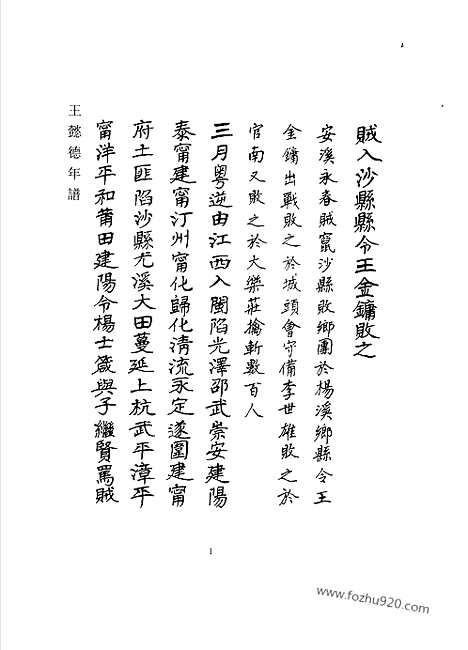 賊入沙縣縣令王金鏞敗之
安溪永春賊竄沙縣敗鄉團於楊溪鄉縣令王
金鏞出戰敗之於城頭會守備李世雄敗之於
官南又敗之於大樂莊擒斬數百人
三月粵逆由江西入閩陷光澤邵武崇安建陽
泰甯建甯汀州甯化歸化清流永定遂圍建甯
府土匪陷沙縣尤溪大田蔓延上杭武平漳平
甯洋平和莆田建陽令楊士箴與子繼賢罵賊
王懿德年譜
1
www.fozhu920.com